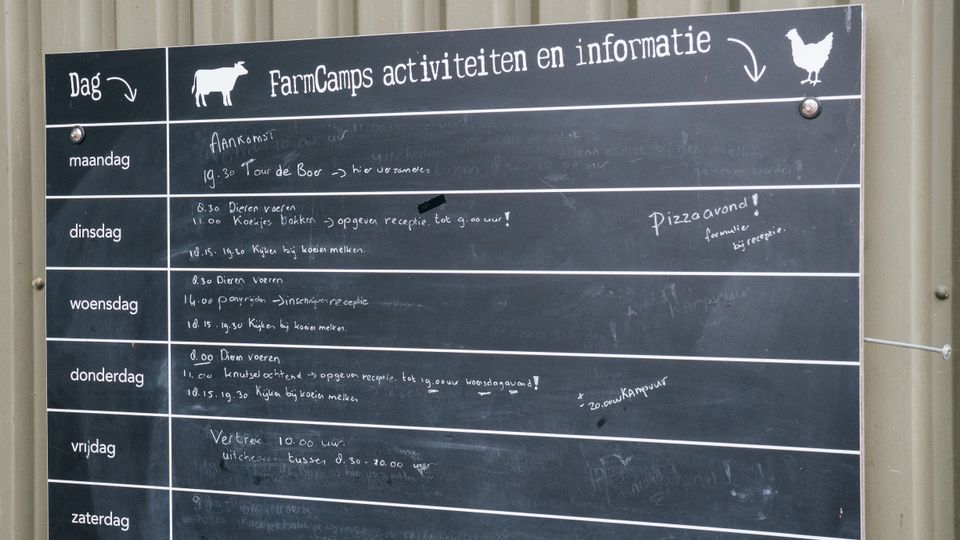 Dag
FarmCamps activiteiten en informatie
maandag
AANKOMST
19.30 Tour de Boer -> hier verzamelen
dinsdag
8.30 Dieren voeren
11.00 Koekjes bakken -> opgeven receptie tot 9.00 uur!
18.15 - 19.30 Kijken bij koeien melken.
Pizzaavond!
formulier
bij receptie.
woensdag
8.30 Dieren voeren
14.00 ponyrijden -> inschrijven receptie
18.15 - 19.30 Kijken bij koeien melken.
Kampvuur
donderdag
8.00 Dieren voeren
11.00 knutselochtend -> opgeven receptie tot 19.00 uur woensdagavond!
18.15 - 19.30 Kijken bij koeien melken
20.00 uur Kampvuur
vrijdag
Vertrek 10.00 uur.
uitchecken tussen 8.30 - 10.00 uur
zaterdag